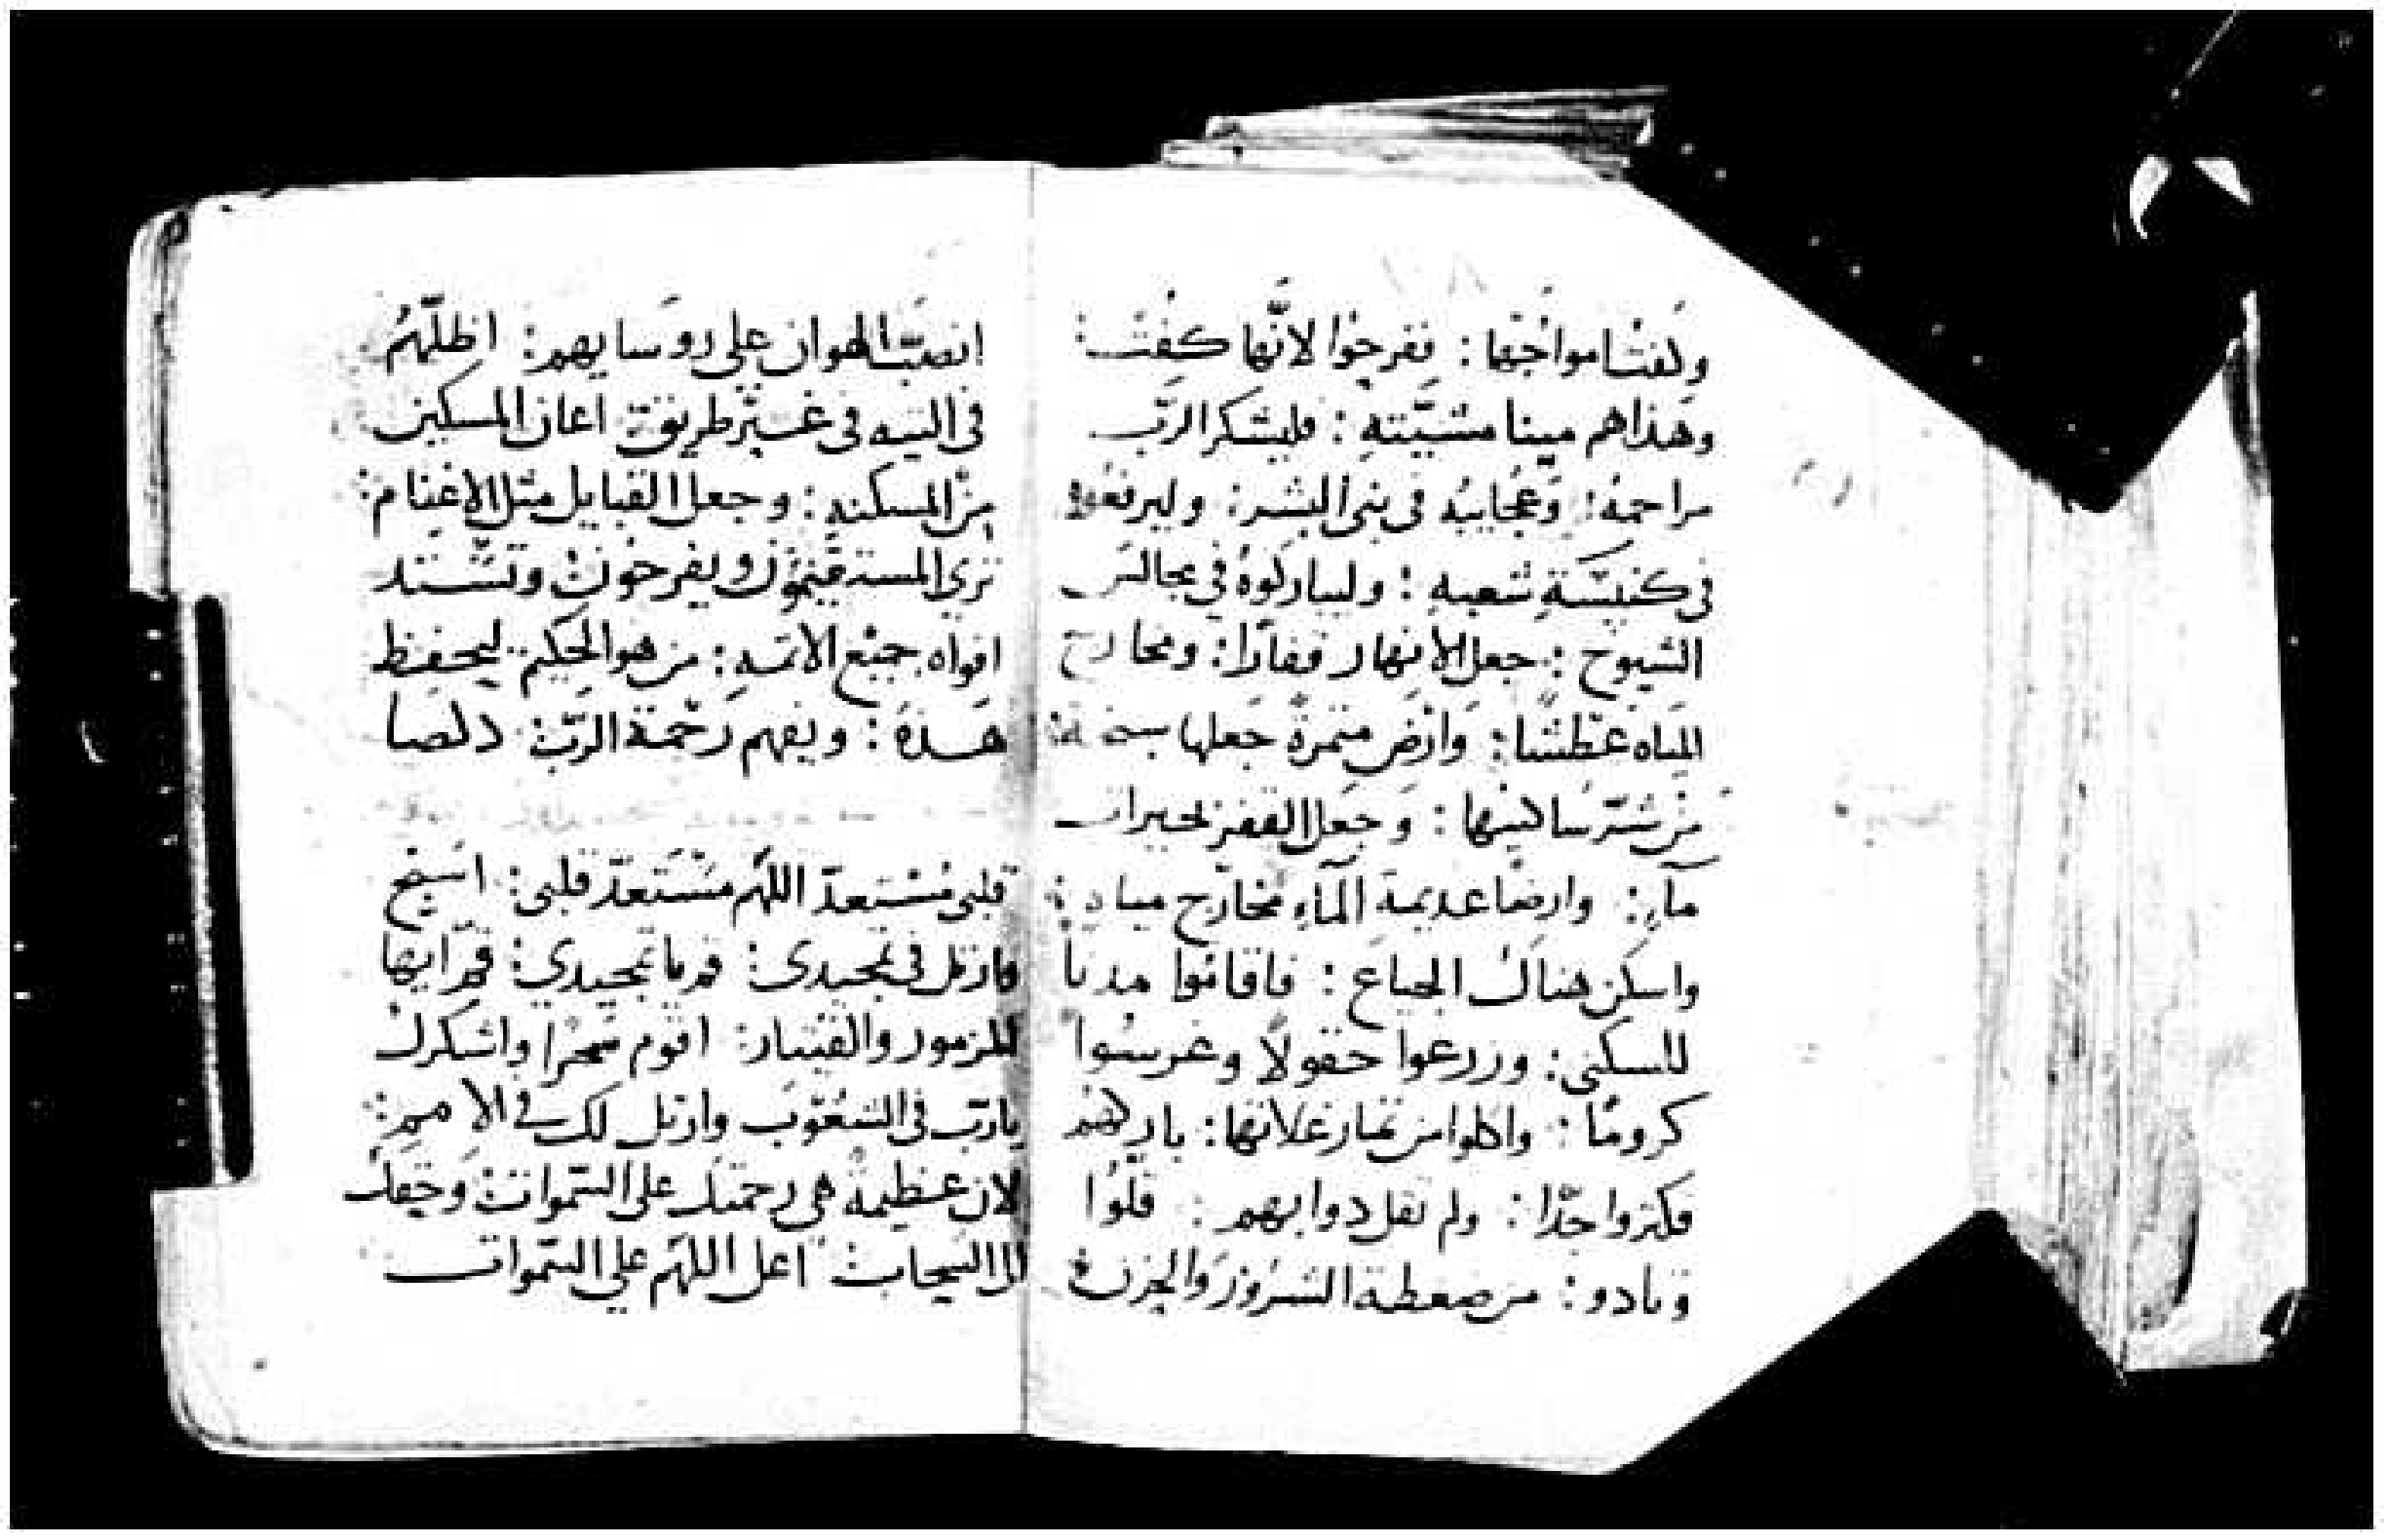 وكفتا مواجها : ففرحوا لانها كفت :
وهداهم مينا مشيته : فليشكر الرب
مراحمه : وعجايبه في بني البشر : وليرفعوه
في كنيسة شعبه : وليباركوه في مجالس
الشيوخ : جعل الانهار قفارا : ومخارج
المياه عطشا : وارض مثمرة جعلها سبخة :
من شر ساكنيها : وجعل القفر بحيرات
ماء : وارضا عديمة الماء مخارج مياه :
واسكن هناك الجياع : فاقاموا مدنا
للسكنى : وزرعوا حقولا وغرسوا
كروما : واكلوا من ثمار غلاتها : باركهم
فكثروا جدا : ولم تقل دوابهم : قلوا
وبادو : من ضغطة الشرور والحزن :
انصب الهوان على روسايهم : اظلهم
في التيه في غير طريق : اعان المسكين
من المسكنه : وجعل القبايل مثل الاغنام :
ترى المستقيمون ويفرحون : وتستد
افواه جميع الاثمه : من هو الحكيم ليحفظ
هذه : ويفهم رحمة الرب :
قلبي مستعد اللهم مستعد قلبي : اسبح
وارتل في تمجيدي : قم يا تمجيدي : قم ايها
المزمور والقيثار : اقوم سحرا واشكرك
يارب في الشعوب وارتل لك في الامم :
لان عظيمة هي رحمتك على السموات : وحقك
الى السحاب : اعل اللهم على السموات